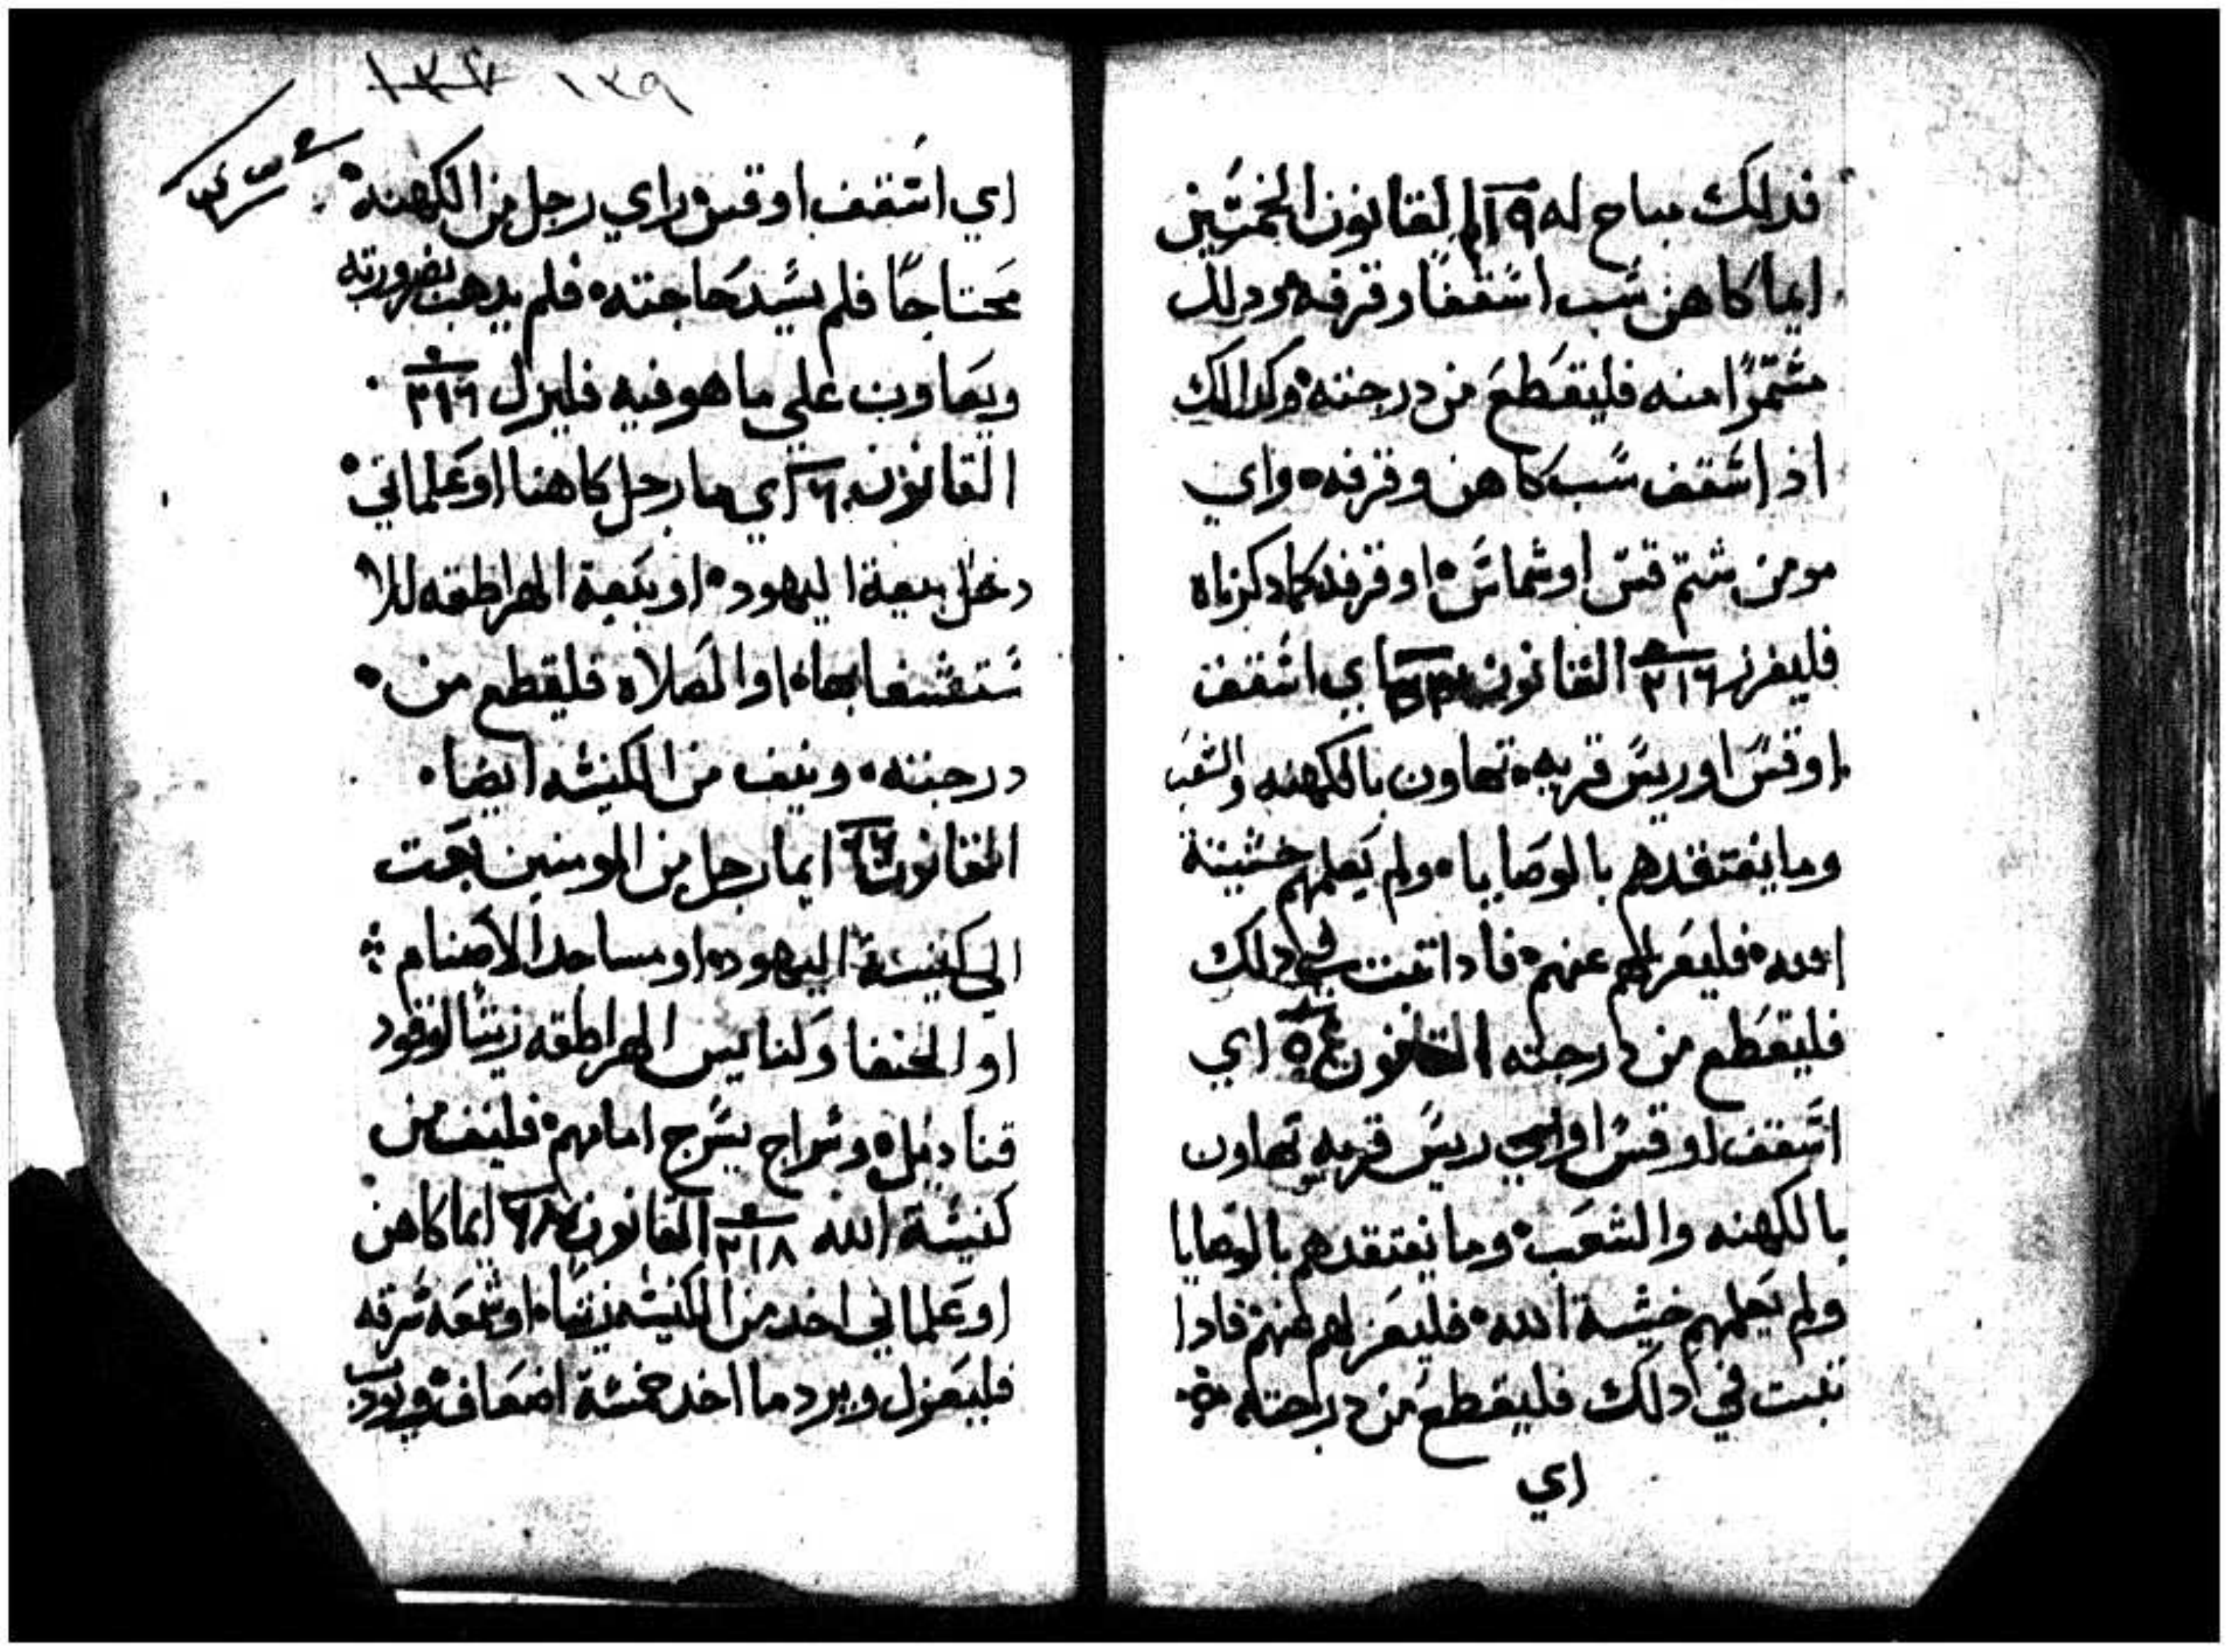 فدلك مباح له القانون الخمسين
ايما كاهن سب اسقفا وقرفه ودلك
منه فليقطع من درجته وكدالك
اذ اسقف سب كاهن وقرفه واي
مومن شتم قس او شماس او قرفه كما دكرناه
فليفرز ٢١٦ القانون اي اسقف
او قس او ريس قريه تهاون بالكهنه والشعب
وما يفتقدهم بالوصايا ولم يعلمهم خشية
الله فليعزلهم عنهم فادا تبت في دلك
فليقطع من درجته القانون اي
اسقف او قس او اي ريس قريه تهاون
بالكهنه والشعب وما يفتقدهم بالوصايا
ولم يعلمهم خشية الله فليعزلهم عنهم فادا
تبت في دلك فليقطع من درجته
اي
١٣٩
اي اسقف او قس راي رجل من الكهنه
محتاجا فلم يسد حاجته فلم يدهب بضرورته
ويعاون علي ما هو فيه فليزل ٣١٦
القانون اي ما رجل كاهنا او علماني
دخل بيعة اليهود او بيعة الهراطقه للا
ستشفا بها او الصلاه فليقطع من
درجته وينف من الكنيسه ايضا
القانون ايما رجل من المومنين بعت
الي كنيسة اليهود او مساجد الاصنام
او الحنفا وكنايس الهراطقه زيتا لوقود
قناديل وسراج يسرج امامهم فلينف من
كنيسة الله ٢١٨ القانون ايما كاهن
او علماني اخد من الكنيسه زيتا او شمعه سرقه
فليعزل ويرد ما اخد خمسة اضعاف